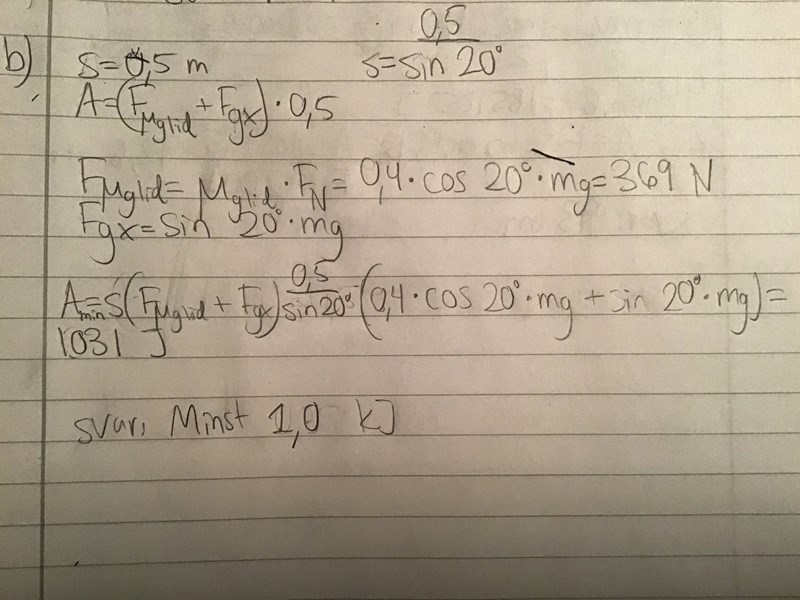 b) s=0,5 m s=0,5/sin 20°
A=(Fμglid + Fgx)·0,5
Fμglid = μglid·FN = 0,4·cos 20°·mg=369 N
Fgx=sin 20°·mg
Amin=s(Fμglid + Fgx) 0,5/sin20°·(0,4·cos 20°·mg + sin 20°·mg)=
1031 J
svar: Minst 1,0 kJ